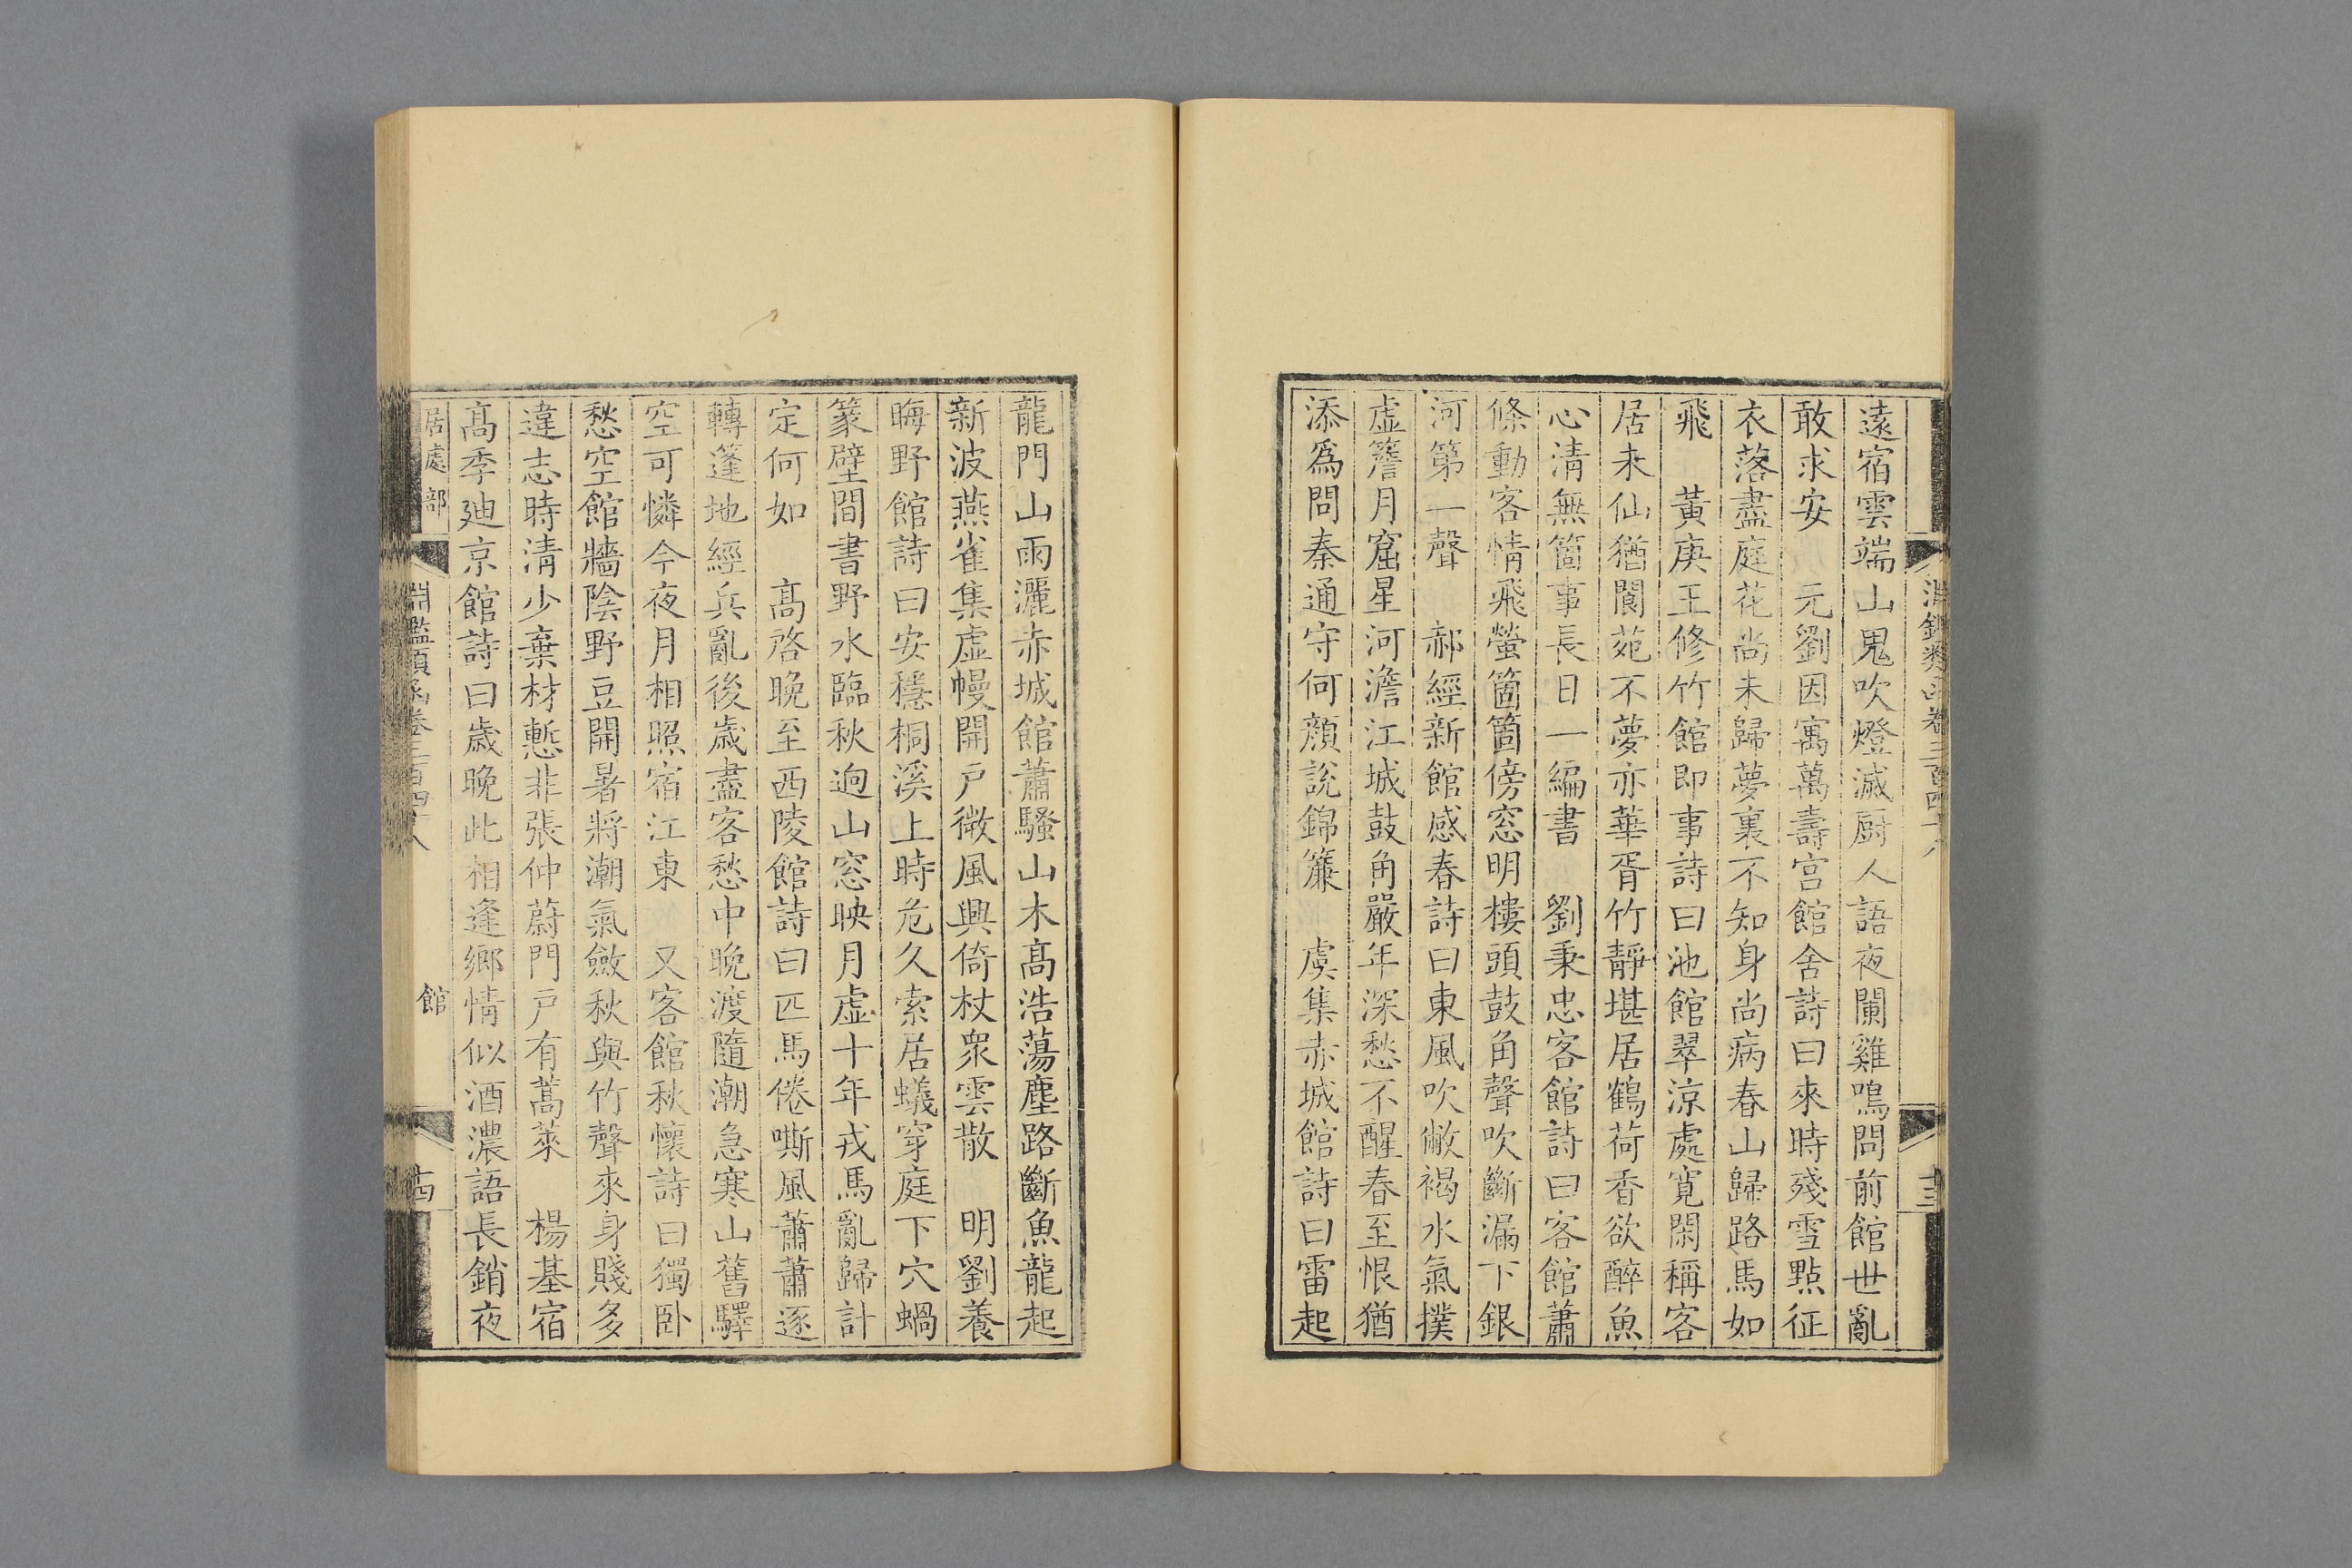 淵鑑類函卷三百四十八
十三
遠宿雲端山鬼吹燈滅厨人語夜闌雞鳴問前館世亂
敢求安　元劉因寓萬壽宫館舍詩曰來時殘雪點征
衣落盡庭花尚未歸夢裏不知身尚病春山歸路馬如
飛　黃庚王修竹館即事詩曰池館翠涼處寬閑稱客
居未仙猶閬苑不夢亦華胥竹靜堪居鶴荷香欲醉魚
心清無箇事長日一編書　劉秉忠客館詩曰客館蕭
條動客情飛螢箇箇傍窓明樓頭鼓角聲吹斷漏下銀
河第一聲　郝經新館感春詩曰東風吹敝褐水氣撲
虛簷月窟星河澹江城鼓角嚴年深愁不醒春至恨猶
添爲問秦通守何顔說錦簾　虞集赤城館詩曰雷起
龍門山雨灑赤城館蕭騷山木高浩蕩塵路斷魚龍起
新波燕雀集虛幔開戶微風興倚杖衆雲散　明劉養
晦野館詩曰安穩桐溪上時危久索居蟻穿庭下穴蝸
篆壁間書野水臨秋逈山窓映月虛十年戎馬亂歸計
定何如　高啓晚至西陵館詩曰匹馬倦嘶風蕭蕭逐
轉篷地經兵亂後歲盡客愁中晚渡隨潮急寒山舊驛
空可憐今夜月相照宿江東　又客館秋懷詩曰獨卧
愁空館牆陰野豆開暑將潮氣斂秋與竹聲來身賤多
違志時淸少棄材慙非張仲蔚門戶有蒿萊　楊基宿
高季廸京館詩曰歲晚此相逢鄉情似酒濃語長銷夜
居處部
淵鑑類函卷三百四十八
館
十四